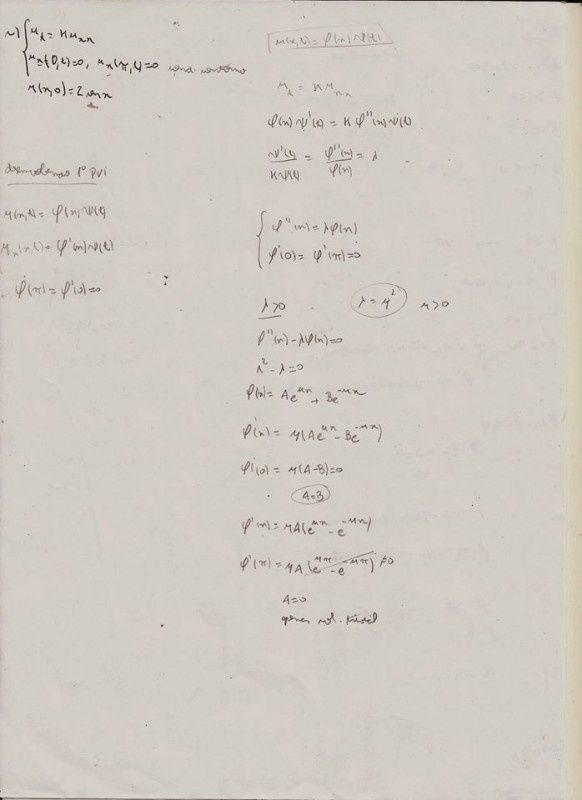 u_t = K u_xx
u_x(0,t)=0, u_x(π,t)=0
u(x,0)=2
1º PVI
u(x,t)= φ(x)ψ(t)
u_x(x,t)= φ'(x)ψ(t)
φ'(π)=φ'(0)=0
u(x,t)= φ(x)ψ(t)
u_t = K u_xx
φ(x)ψ'(t) = K φ''(x)ψ(t)
ψ'(t)/Kψ(t) = φ''(x)/φ(x) = λ
φ''(x) = λφ(x)
φ'(0) = φ'(π)=0
λ>0 λ=μ² μ>0
φ''(x) - λφ(x)=0
r² - λ=0
φ(x)= Ae^μx + Be^-μx
φ'(x) = μ(Ae^μx - Be^-μx)
φ'(0) = μ(A-B)=0
A=B
φ'(x) = μA(e^μx - e^-μx)
φ'(π) = μA(e^μπ - e^-μπ) ≠0
A=0
sol. trivial